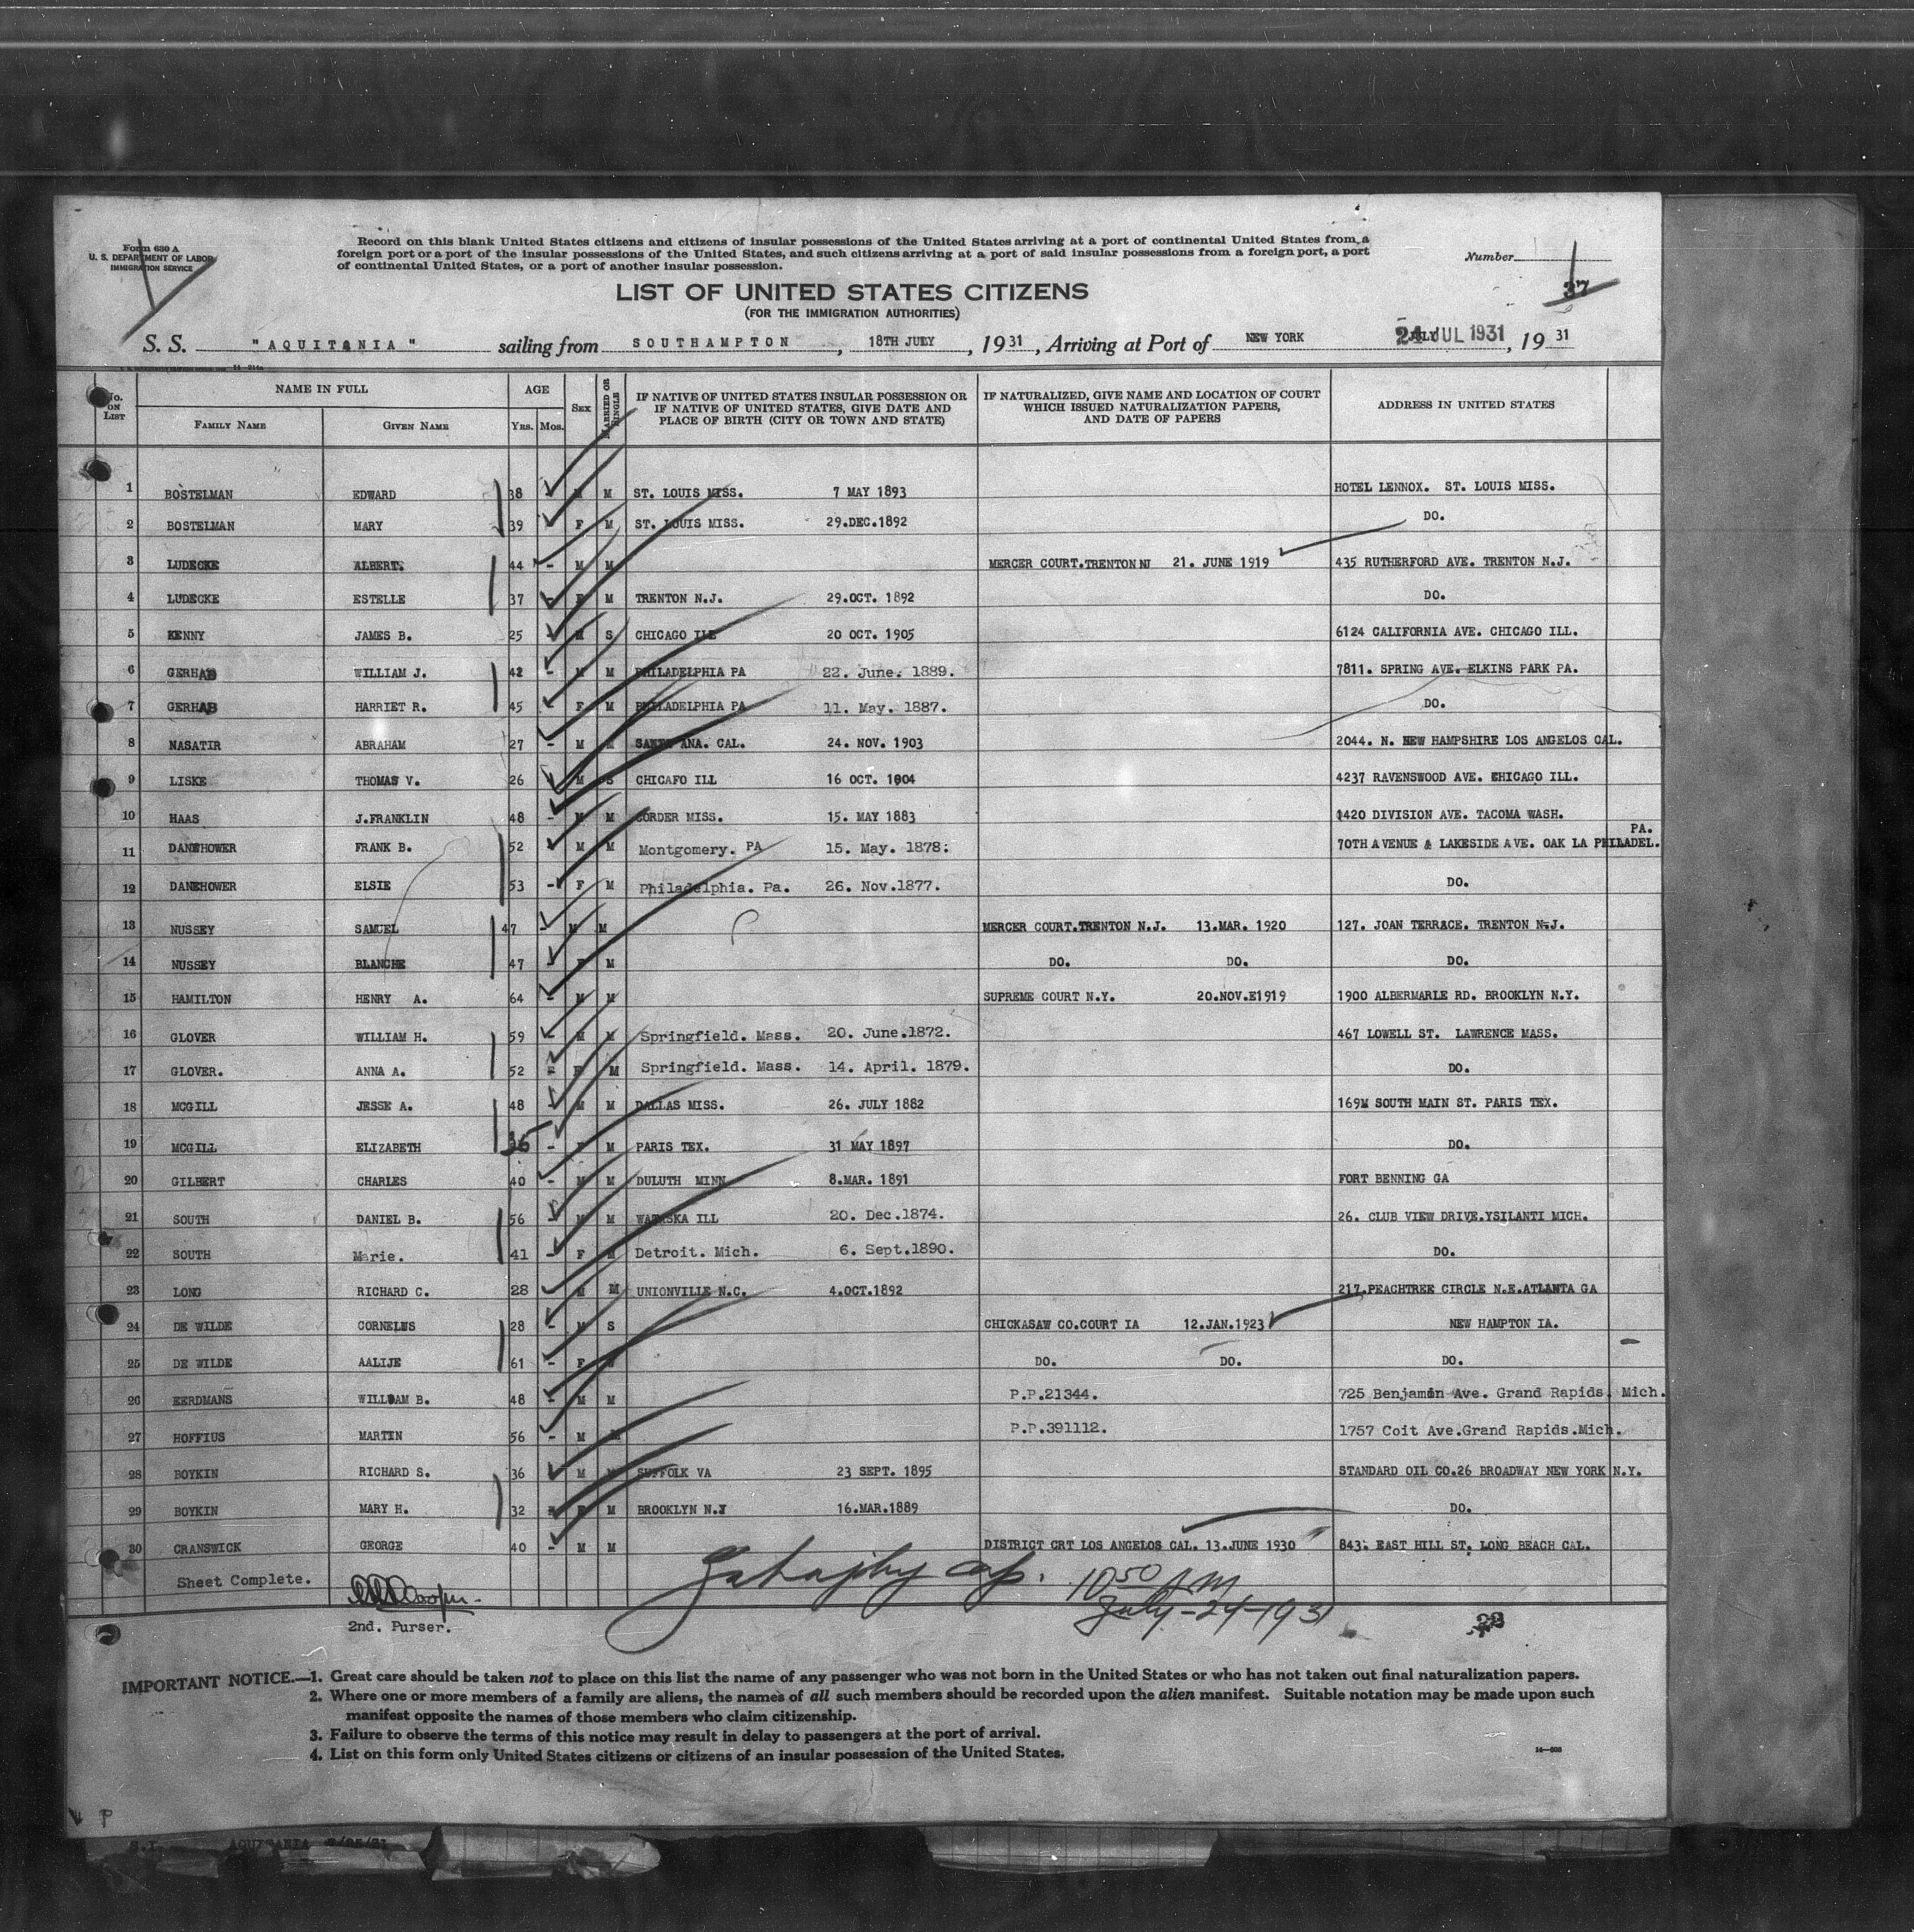 Form 630 A
U. S. DEPARTMENT OF LABOR
IMMIGRATION SERVICE
Record on this blank United States citizens and citizens of insular possessions of the United States arriving at a port of continental United States from a
foreign port or a port of the insular possessions of the United States, and such citizens arriving at a port of said insular possessions from a foreign port, a port
of continental United States, or a port of another insular possession.
Number
37
LIST OF UNITED STATES CITIZENS
(FOR THE IMMIGRATION AUTHORITIES)
S. S. "AQUITANIA" sailing from SOUTHAMPTON, 18TH JULY, 1931, Arriving at Port of NEW YORK 24 JUL 1931, 1931
No. ON LIST NAME IN FULL AGE SEX MARRIED OR SINGLE IF NATIVE OF UNITED STATES INSULAR POSSESSION OR IF NATIVE OF UNITED STATES, GIVE DATE AND PLACE OF BIRTH (CITY OR TOWN AND STATE) IF NATURALIZED, GIVE NAME AND LOCATION OF COURT WHICH ISSUED NATURALIZATION PAPERS, AND DATE OF PAPERS ADDRESS IN UNITED STATES
FAMILY NAME GIVEN NAME YRS. MOS.
1 BOSTELMAN EDWARD 38 M M ST. LOUIS MISS. 7 MAY 1893 HOTEL LENNOX. ST. LOUIS MISS.
2 BOSTELMAN MARY 39 F M ST. LOUIS MISS. 29.DEC.1892 DO.
3 LUDECKE ALBERT. 44 - M M MERCER COURT.TRENTON NJ 21. JUNE 1919 435 RUTHERFORD AVE. TRENTON N.J.
4 LUDECKE ESTELLE 37 - F M TRENTON N.J. 29.OCT. 1892 DO.
5 KENNY JAMES B. 25 - M S CHICAGO ILL 20 OCT. 1905 6124 CALIFORNIA AVE. CHICAGO ILL.
6 GERHAB WILLIAM J. 42 - M M PHILADELPHIA PA 22. June. 1889. 7811. SPRING AVE. ELKINS PARK PA.
7 GERHAB HARRIET R. 45 - F M PHILADELPHIA PA 11. May. 1887. DO.
8 NASATIR ABRAHAM 27 - M M SANTA ANA. CAL. 24. NOV. 1903 2044. N. NEW HAMPSHIRE LOS ANGELOS CAL.
9 LISKE THOMAS V. 26 M S CHICAFO ILL 16 OCT. 1904 4237 RAVENSWOOD AVE. CHICAGO ILL.
10 HAAS J.FRANKLIN 48 - M M CORDER MISS. 15. MAY 1883 1420 DIVISION AVE. TACOMA WASH.
11 DANEHOWER FRANK B. 52 M M Montgomery. PA 15. May. 1878. 70TH AVENUE & LAKESIDE AVE. OAK LA PHILADEL. PA.
12 DANEHOWER ELSIE 53 - F M Philadelphia. Pa. 26. Nov.1877. DO.
13 NUSSEY SAMUEL 47 - M M MERCER COURT.TRENTON N.J. 13.MAR. 1920 127. JOAN TERRACE. TRENTON N.J.
14 NUSSEY BLANCHE 47 - F M DO. DO. DO.
15 HAMILTON HENRY A. 64 - M M SUPREME COURT N.Y. 20.NOV.E1919 1900 ALBERMARLE RD. BROOKLYN N.Y.
16 GLOVER WILLIAM H. 59 - M M Springfield. Mass. 20. June.1872. 467 LOWELL ST. LAWRENCE MASS.
17 GLOVER. ANNA A. 52 - F M Springfield. Mass. 14. April. 1879. DO.
18 MCGILL JESSE A. 48 - M M DALLAS MISS. 26. JULY 1882 169M SOUTH MAIN ST. PARIS TEX.
19 MCGILL ELIZABETH - F M PARIS TEX. 31 MAY 1897 DO.
20 GILBERT CHARLES 40 - M M DULUTH MINN 8.MAR. 1891 FORT BENNING GA
21 SOUTH DANIEL B. 56 - M M WATESKA ILL 20. Dec.1874. 26. CLUB VIEW DRIVE.YSILANTI MICH.
22 SOUTH Marie. 41 - F M Detroit. Mich. 6. Sept.1890. DO.
23 LONG RICHARD C. 28 - M M UNIONVILLE N.C. 4.OCT.1892 217.PEACHTREE CIRCLE N.E.ATLANTA GA
24 DE WILDE CORNELUS 28 - M S CHICKASAW CO.COURT IA 12.JAN.1923 NEW HAMPTON IA.
25 DE WILDE AALIJE 61 - F DO. DO. DO.
26 EERDMANS WILLIAM B. 48 - M M P.P.21344. 725 Benjamin Ave. Grand Rapids. Mich.
27 HOFFIUS MARTIN 56 - M M P.P.391112. 1757 Coit Ave.Grand Rapids.Mich.
28 BOYKIN RICHARD S. 36 - M M SUFFOLK VA 23 SEPT. 1895 STANDARD OIL CO.26 BROADWAY NEW YORK N.Y.
29 BOYKIN MARY H. 32 F M BROOKLYN N.Y 16.MAR.1889 DO.
30 CRANSWICK GEORGE 40 - M M DISTRICT CRT LOS ANGELOS CAL. 13.JUNE 1930 843. EAST HILL ST. LONG BEACH CAL.
Sheet Complete.
2nd. Purser.
10 50 AM
July-24-1931
IMPORTANT NOTICE.—1. Great care should be taken not to place on this list the name of any passenger who was not born in the United States or who has not taken out final naturalization papers.
2. Where one or more members of a family are aliens, the names of all such members should be recorded upon the alien manifest. Suitable notation may be made upon such
manifest opposite the names of those members who claim citizenship.
3. Failure to observe the terms of this notice may result in delay to passengers at the port of arrival.
4. List on this form only United States citizens or citizens of an insular possession of the United States.